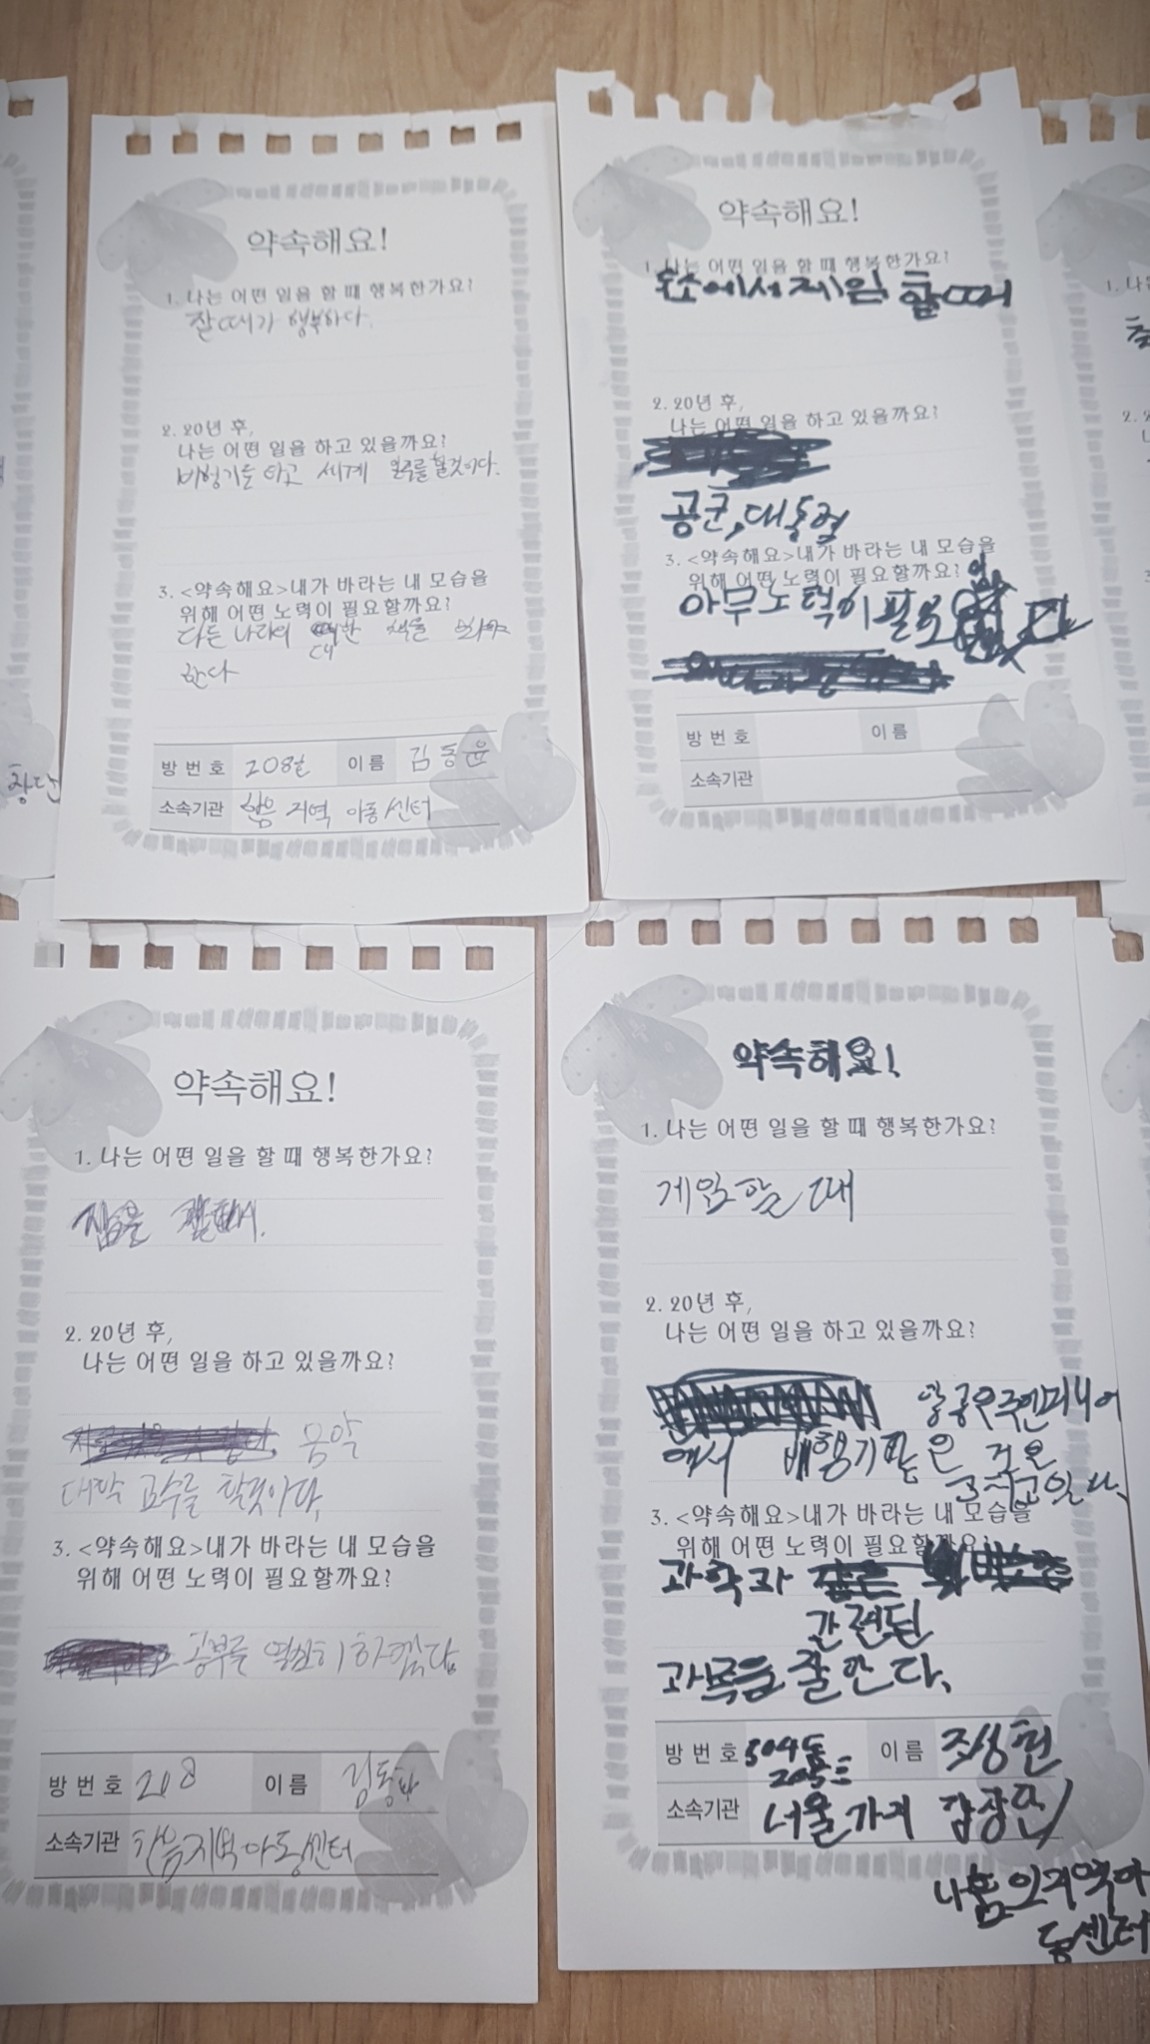 약속해요!
1. 나는 어떤 일을 할 때 행복한가요?
잘때가 행복하다.
2. 20년 후,
나는 어떤 일을 하고 있을까요?
비헝기을 타고 세계 일주를 할것이다.
3. <약속해요>내가 바라는 내 모습을
위해 어떤 노력이 필요할까요?
다른 나라에 대한 책을 봐야
한다
방 번 호 208호 이 름 김동윤
소속기관 지역 아동센터
약속해요!
1. 나는 어떤 일을 할 때 행복한가요?
에서 게임 할때
2. 20년 후,
나는 어떤 일을 하고 있을까요?
공군, 대통령
3. <약속해요>내가 바라는 내 모습을
위해 어떤 노력이 필요할까요?
아무노력이필요
방 번 호 이 름
소속기관
약속해요!
1. 나는 어떤 일을 할 때 행복한가요?
잠을 잘때.
2. 20년 후,
나는 어떤 일을 하고 있을까요?
음악
대학 교수를 할것이다
3. <약속해요>내가 바라는 내 모습을
위해 어떤 노력이 필요할까요?
공부를 열심히 하겠다
방 번 호 208 이 름 김동
소속기관 지역아동센터
약속해요!
1. 나는 어떤 일을 할 때 행복한가요?
게임할 때
2. 20년 후,
나는 어떤 일을 하고 있을까요?
항공우주엔지니어
에서 배행기같은 것은
고치고있다.
3. <약속해요>내가 바라는 내 모습을
위해 어떤 노력이 필요할까요?
과학과
관련된
과목을 잘한다.
방 번 호 504동 이 름 조성현
소속기관 너울가지
지역아
동센터